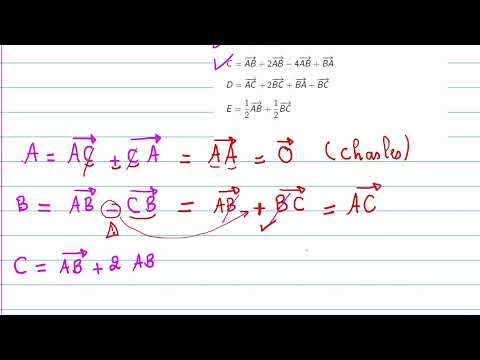 C = AB + 2AB − 4AB + BA
D = AC + 2BC + BA − BC
E = 1/2 AB + 1/2 BC
A = AC + CA = AA = O (Chasles)
B = AB − CB = AB + BC = AC
C = AB + 2 AB